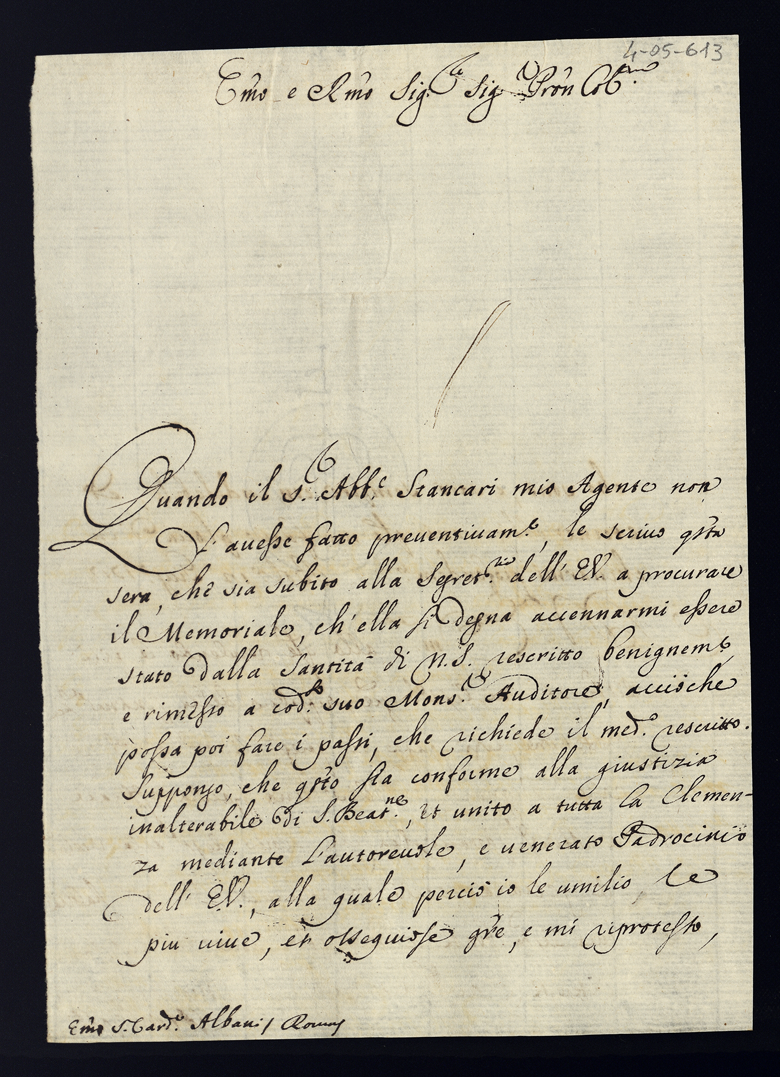 4-05-613
Emo e Rmo Sig.re Sig.r Pron Col.mo
Quando il S.r Abb.e Stancari mio Agente non
l'auesse fatto preuentiuam.e, le scriuo qsta
sera, che sia subito alla Segret.ria dell' E.V. a procurare
il Memoriale, ch'ella si degna accennarmi essere
stato dalla Santità di N.S. rescritto benignem.e,
e rimesso a cod.o suo Mons.r Auditore, acciòche
possa poi fare i passi, che richiede il med.o rescritto.
Suppongo, che qsto sia conforme alla giustizia
inalterabile di S. Beat.ne, et unito a tutta la Clemen-
za mediante l'autoreuole, e uenerato Padrocinio
dell' E.V., alla quale perciò io le umilio le
piu uiue, et ossequiose gre, e mi riprotesto,
Emo S. Card.e Albani / Roma /